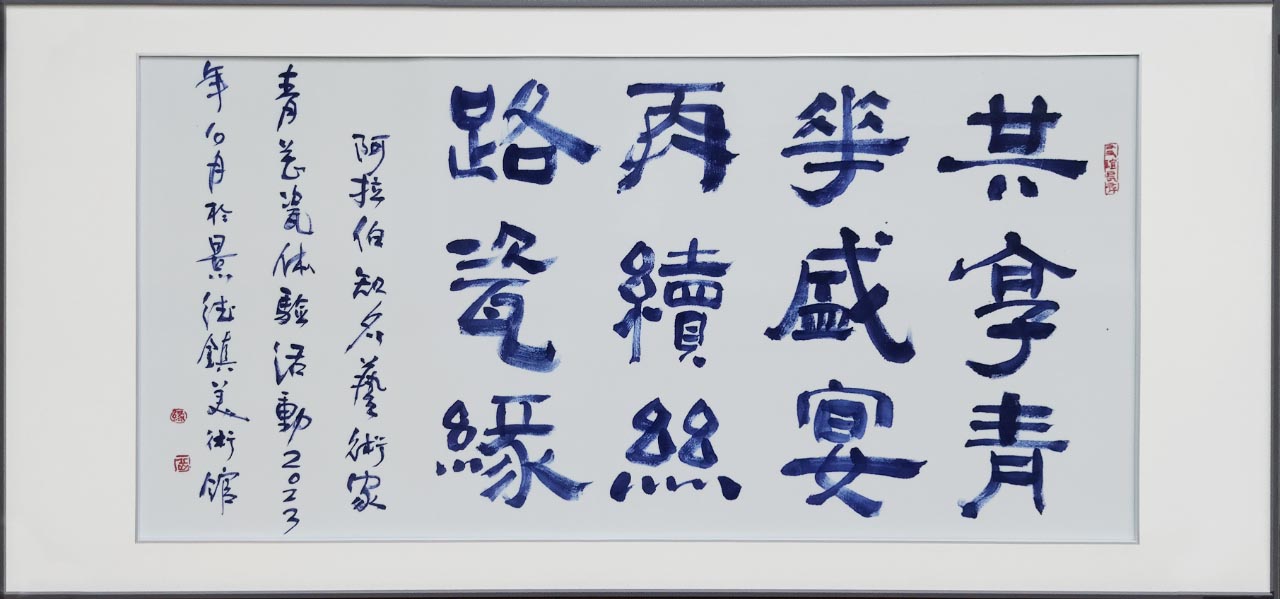 共享青
華盛宴
再續絲
路瓷緣
阿拉伯知名藝術家
青花瓷体驗活動2023
年10月於景德鎮美術館